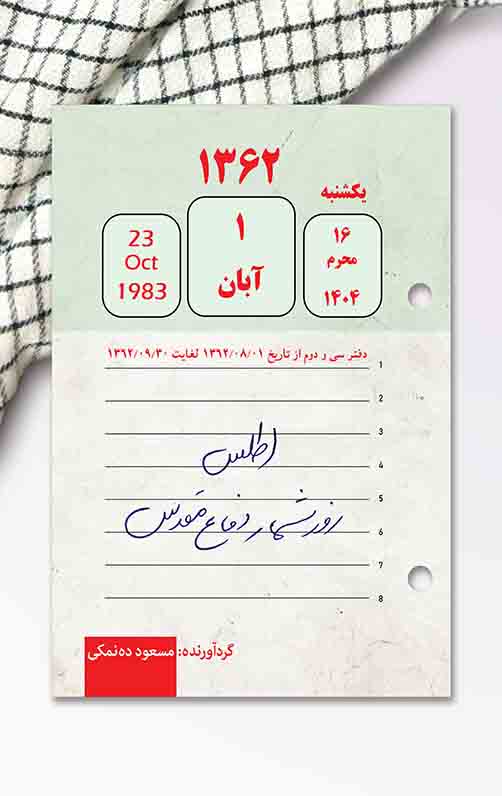 ۱۳۶۲
یکشنبه
۱۶
محرم
۱۴۰۴
۱
آبان
23
Oct
1983
دفتر سی و دوم از تاریخ ۱۳۶۲/۰۸/۰۱ لغایت ۱۳۶۲/۰۹/۳۰
1
2
3
اطلس
4
5
روزشمار دفاع مقدس
6
7
8
گردآورنده: مسعود ده‌نمکی